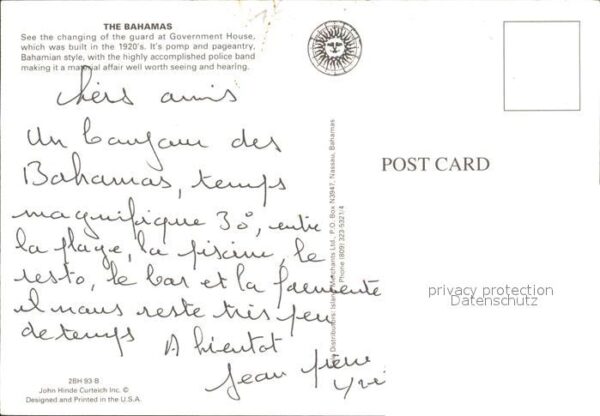 THE BAHAMAS
See the changing of the guard at Government House,
which was built in the 1920's. It's pomp and pageantry,
Bahamian style, with the highly accomplished police band
making it a material affair well worth seeing and hearing.
chers amis
Un bonjour des
Bahamas, temps
magnifique 30°, entre
la plage, la piscine, le
resto, le bar et la farniente
il nous reste très peu
de temps
A bientot
Jean Pierre
2BH 93 B
John Hinde Curteich Inc. ©
Designed and Printed in the U.S.A.
Distributors: Island Merchants Ltd., P.O. Box N3947, Nassau, Bahamas
Phone (809) 323-5321/4
POST CARD
privacy protection
Datenschutz